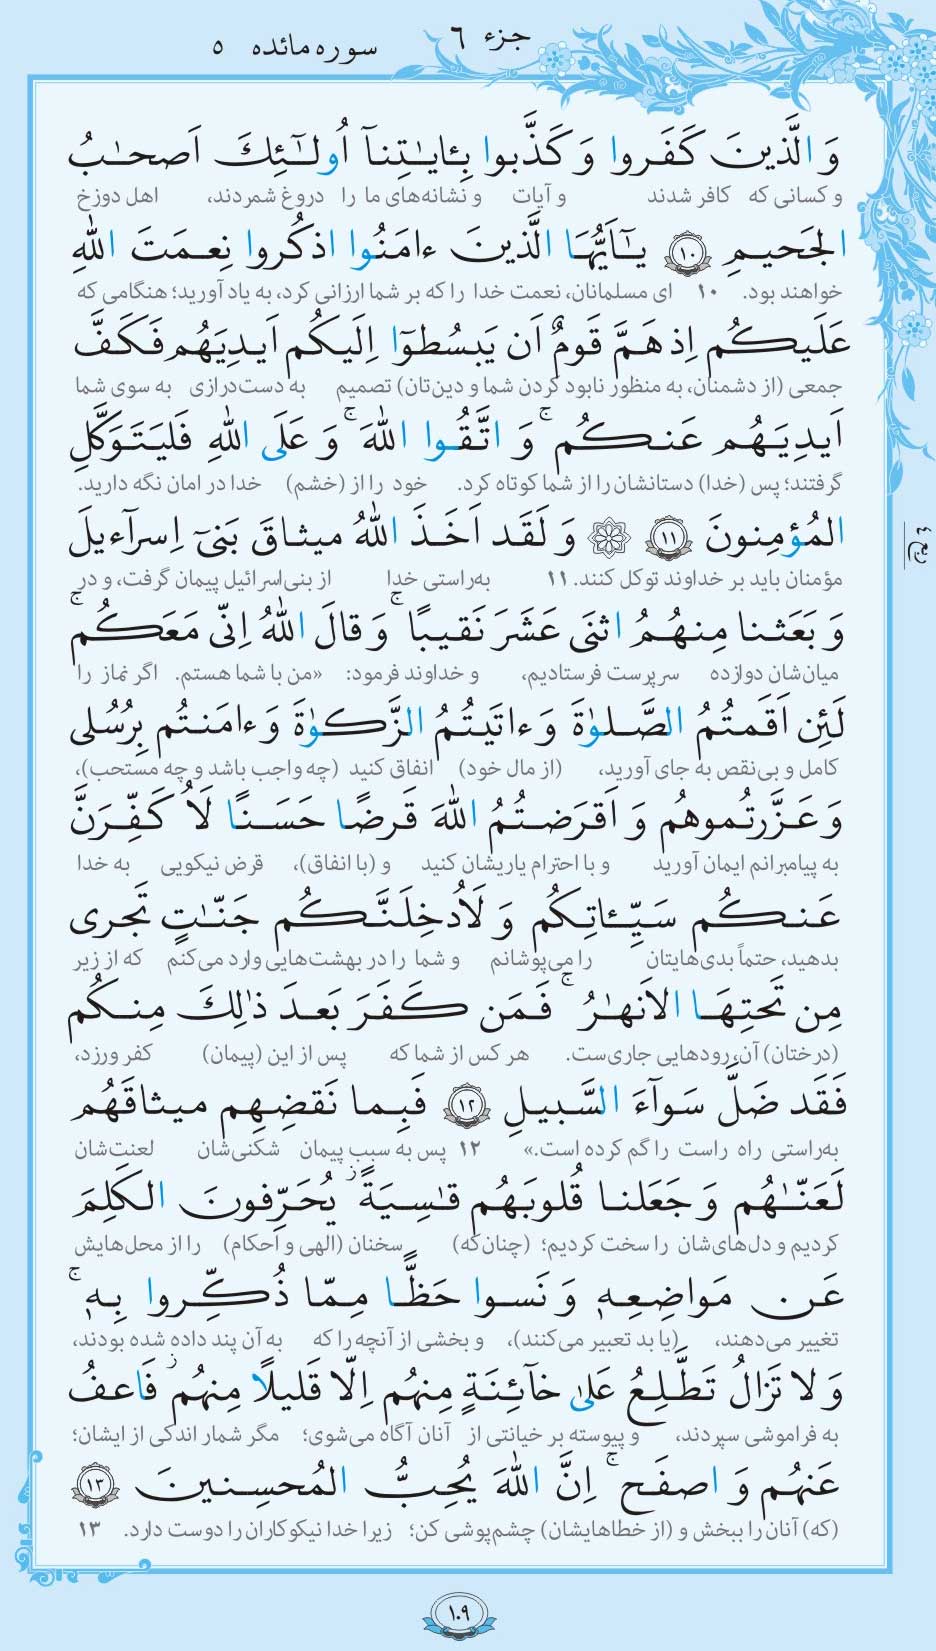 جزء ۶
سوره مائده ۵
وَ الَّذينَ كَفَروا وَ كَذَّبوا بِـٔايـٰتِنآ اُولـٰٓئِكَ اَصحـٰبُ
و کسانی که کافر شدند و آیات و نشانه‌های ما را دروغ شمردند، اهل دوزخ
الجَحيمِ ۱۰ يـٰٓاَيُّهَا الَّذينَ ءامَنُوا اذكُروا نِعمَتَ اللهِ
خواهند بود. ۱۰ ای مسلمانان، نعمت خدا را که بر شما ارزانی کرد، به یاد آورید؛ هنگامی که
عَلَيكُم اِذ هَمَّ قَومٌ اَن يَبسُطوٓا اِلَيكُم اَيدِيَهُم فَكَفَّ
جمعی (از دشمنان، به منظور نابود کردن شما و دین‌تان) تصمیم به دست‌درازی به سوی شما
اَيدِيَهُم عَنكُم ۚ وَ اتَّقُوا اللهَ ۚ وَ عَلَى اللهِ فَليَتَوَكَّلِ
گرفتند؛ پس (خدا) دستانشان را از شما کوتاه کرد. خود را از (خشم) خدا در امان نگه دارید.
المُؤمِنونَ ۱۱ ۞ وَ لَقَد اَخَذَ اللهُ ميثاقَ بَنىٓ اِسرآءيلَ
مؤمنان باید بر خداوند توکل کنند. ۱۱ به‌راستی خدا از بنی‌اسرائیل پیمان گرفت، و در
ربع ۴
وَ بَعَثنا مِنهُمُ اثنَى عَشَرَ نَقيبًا ۚ وَ قالَ اللهُ اِنّى مَعَكُم ۚ
میان‌شان دوازده سرپرست فرستادیم، و خداوند فرمود: «من با شما هستم. اگر نماز را
لَئِن اَقَمتُمُ الصَّلوٰةَ وَ ءاتَيتُمُ الزَّكوٰةَ وَ ءامَنتُم بِرُسُلى
کامل و بی‌نقص به جای آورید، (از مال خود) انفاق کنید (چه واجب باشد و چه مستحب)،
وَ عَزَّرتُموهُم وَ اَقرَضتُمُ اللهَ قَرضًا حَسَنًا لَاُكَفِّرَنَّ
به پیامبرانم ایمان آورید و با احترام یاریشان کنید و (با انفاق)، قرض نیکویی به خدا
عَنكُم سَيِّـٔاتِكُم وَ لَاُدخِلَنَّكُم جَنّـٰتٍ تَجرى
بدهید، حتماً بدی‌هایتان را می‌پوشانم و شما را در بهشت‌هایی وارد می‌کنم که از زیر
مِن تَحتِهَا الاَنهـٰرُ ۚ فَمَن كَفَرَ بَعدَ ذٰلِكَ مِنكُم
(درختان) آن، رودهایی جاری‌ست. هر کس از شما که پس از این (پیمان) کفر ورزد،
فَقَد ضَلَّ سَوآءَ السَّبيلِ ۱۲ فَبِما نَقضِهِم ميثاقَهُم
به‌راستی راه راست را گم کرده است.» ۱۲ پس به سبب پیمان شکنی‌شان لعنت‌شان
لَعَنّـٰهُم وَ جَعَلنا قُلوبَهُم قـٰسِيَةً ز يُحَرِّفونَ الكَلِمَ
کردیم و دل‌های‌شان را سخت کردیم؛ (چنان‌که) سخنان (الهی و احکام) را از محل‌هایش
عَن مَواضِعِهٖ وَ نَسوا حَظًّا مِمّا ذُكِّروا بِهٖ ۚ
تغییر می‌دهند، (یا بد تعبیر می‌کنند)، و بخشی از آنچه را که به آن پند داده شده بودند،
وَ لا تَزالُ تَطَّلِعُ عَلىٰ خآئِنَةٍ مِنهُم اِلّا قَليلًا مِنهُم ز فَاعفُ
به فراموشی سپردند، و پیوسته بر خیانتی از آنان آگاه می‌شوی؛ مگر شمار اندکی از ایشان؛
عَنهُم وَ اصفَح ۚ اِنَّ اللهَ يُحِبُّ المُحسِنينَ ۱۳
(که) آنان را ببخش و (از خطاهایشان) چشم‌پوشی کن؛ زیرا خدا نیکوکاران را دوست دارد. ۱۳
۱۰۹